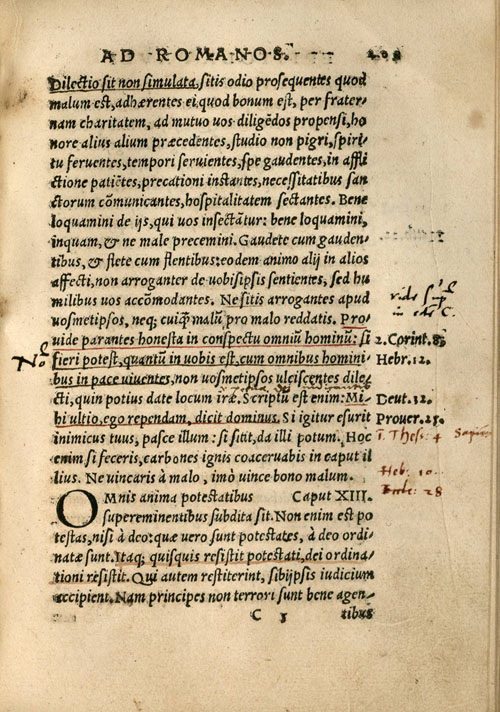 AD ROMANOS.
Dilectio sit non simulata, sitis odio prosequentes quod
malum est, adhærentes ei, quod bonum est, per frater-
nam charitatem, ad mutuo uos diligēdos propensi, ho
nore alius alium præcedentes, studio non pigri, spiri-
tu feruentes, tempori seruientes, spe gaudentes, in affli
ctione patiētes, precationi instātes, necessitatibus san
ctorum cōmunicantes, hospitalitatem sectantes. Bene
loquamini de ijs, qui uos insectātur: bene loquamini,
inquam, & ne male precemini. Gaudete cum gauden-
tibus, & flete cum flentibus: eodem animo alij in alios
affecti, non arroganter de uobisipsis sentientes, sed hu
milibus uos accōmodantes. Ne sitis arrogantes apud
uosmetipsos, neq; cuiq̃ malū pro malo reddatis. Pro-
uide parantes honesta in conspectu omniū hominū: si
2. Corint. 8.
fieri potest, quantū in uobis est, cum omnibus homini
Hebr. 12.
bus in pace uiuentes, non uosmetipsos ulciscentes dile
cti, quin potius date locum iræ. Scriptū est enim: Mi-
Deut. 32.
hi ultio, ego rependam, dicit dominus. Si igitur esurit
Prouer. 25.
inimicus tuus, pasce illum: si sitit, da illi potum. Hoc
1. Thess: 4
enim si feceris, carbones ignis coaceruabis in caput il
lius. Ne uincaris à malo, imò uince bono malum.
Heb: 10.
OMnis anima potestatibus Caput XIII.
28
supereminentibus subdita sit. Non enim est po
testas, nisi à deo: quæ uero sunt potestates, à deo ordi-
natæ sunt. Itaq; quisquis resistit potestati, dei ordina-
tioni resistit. Qui autem restiterint, sibijpsis iudicium
accipient. Nam principes non terrori sunt bene agen-
C tibus